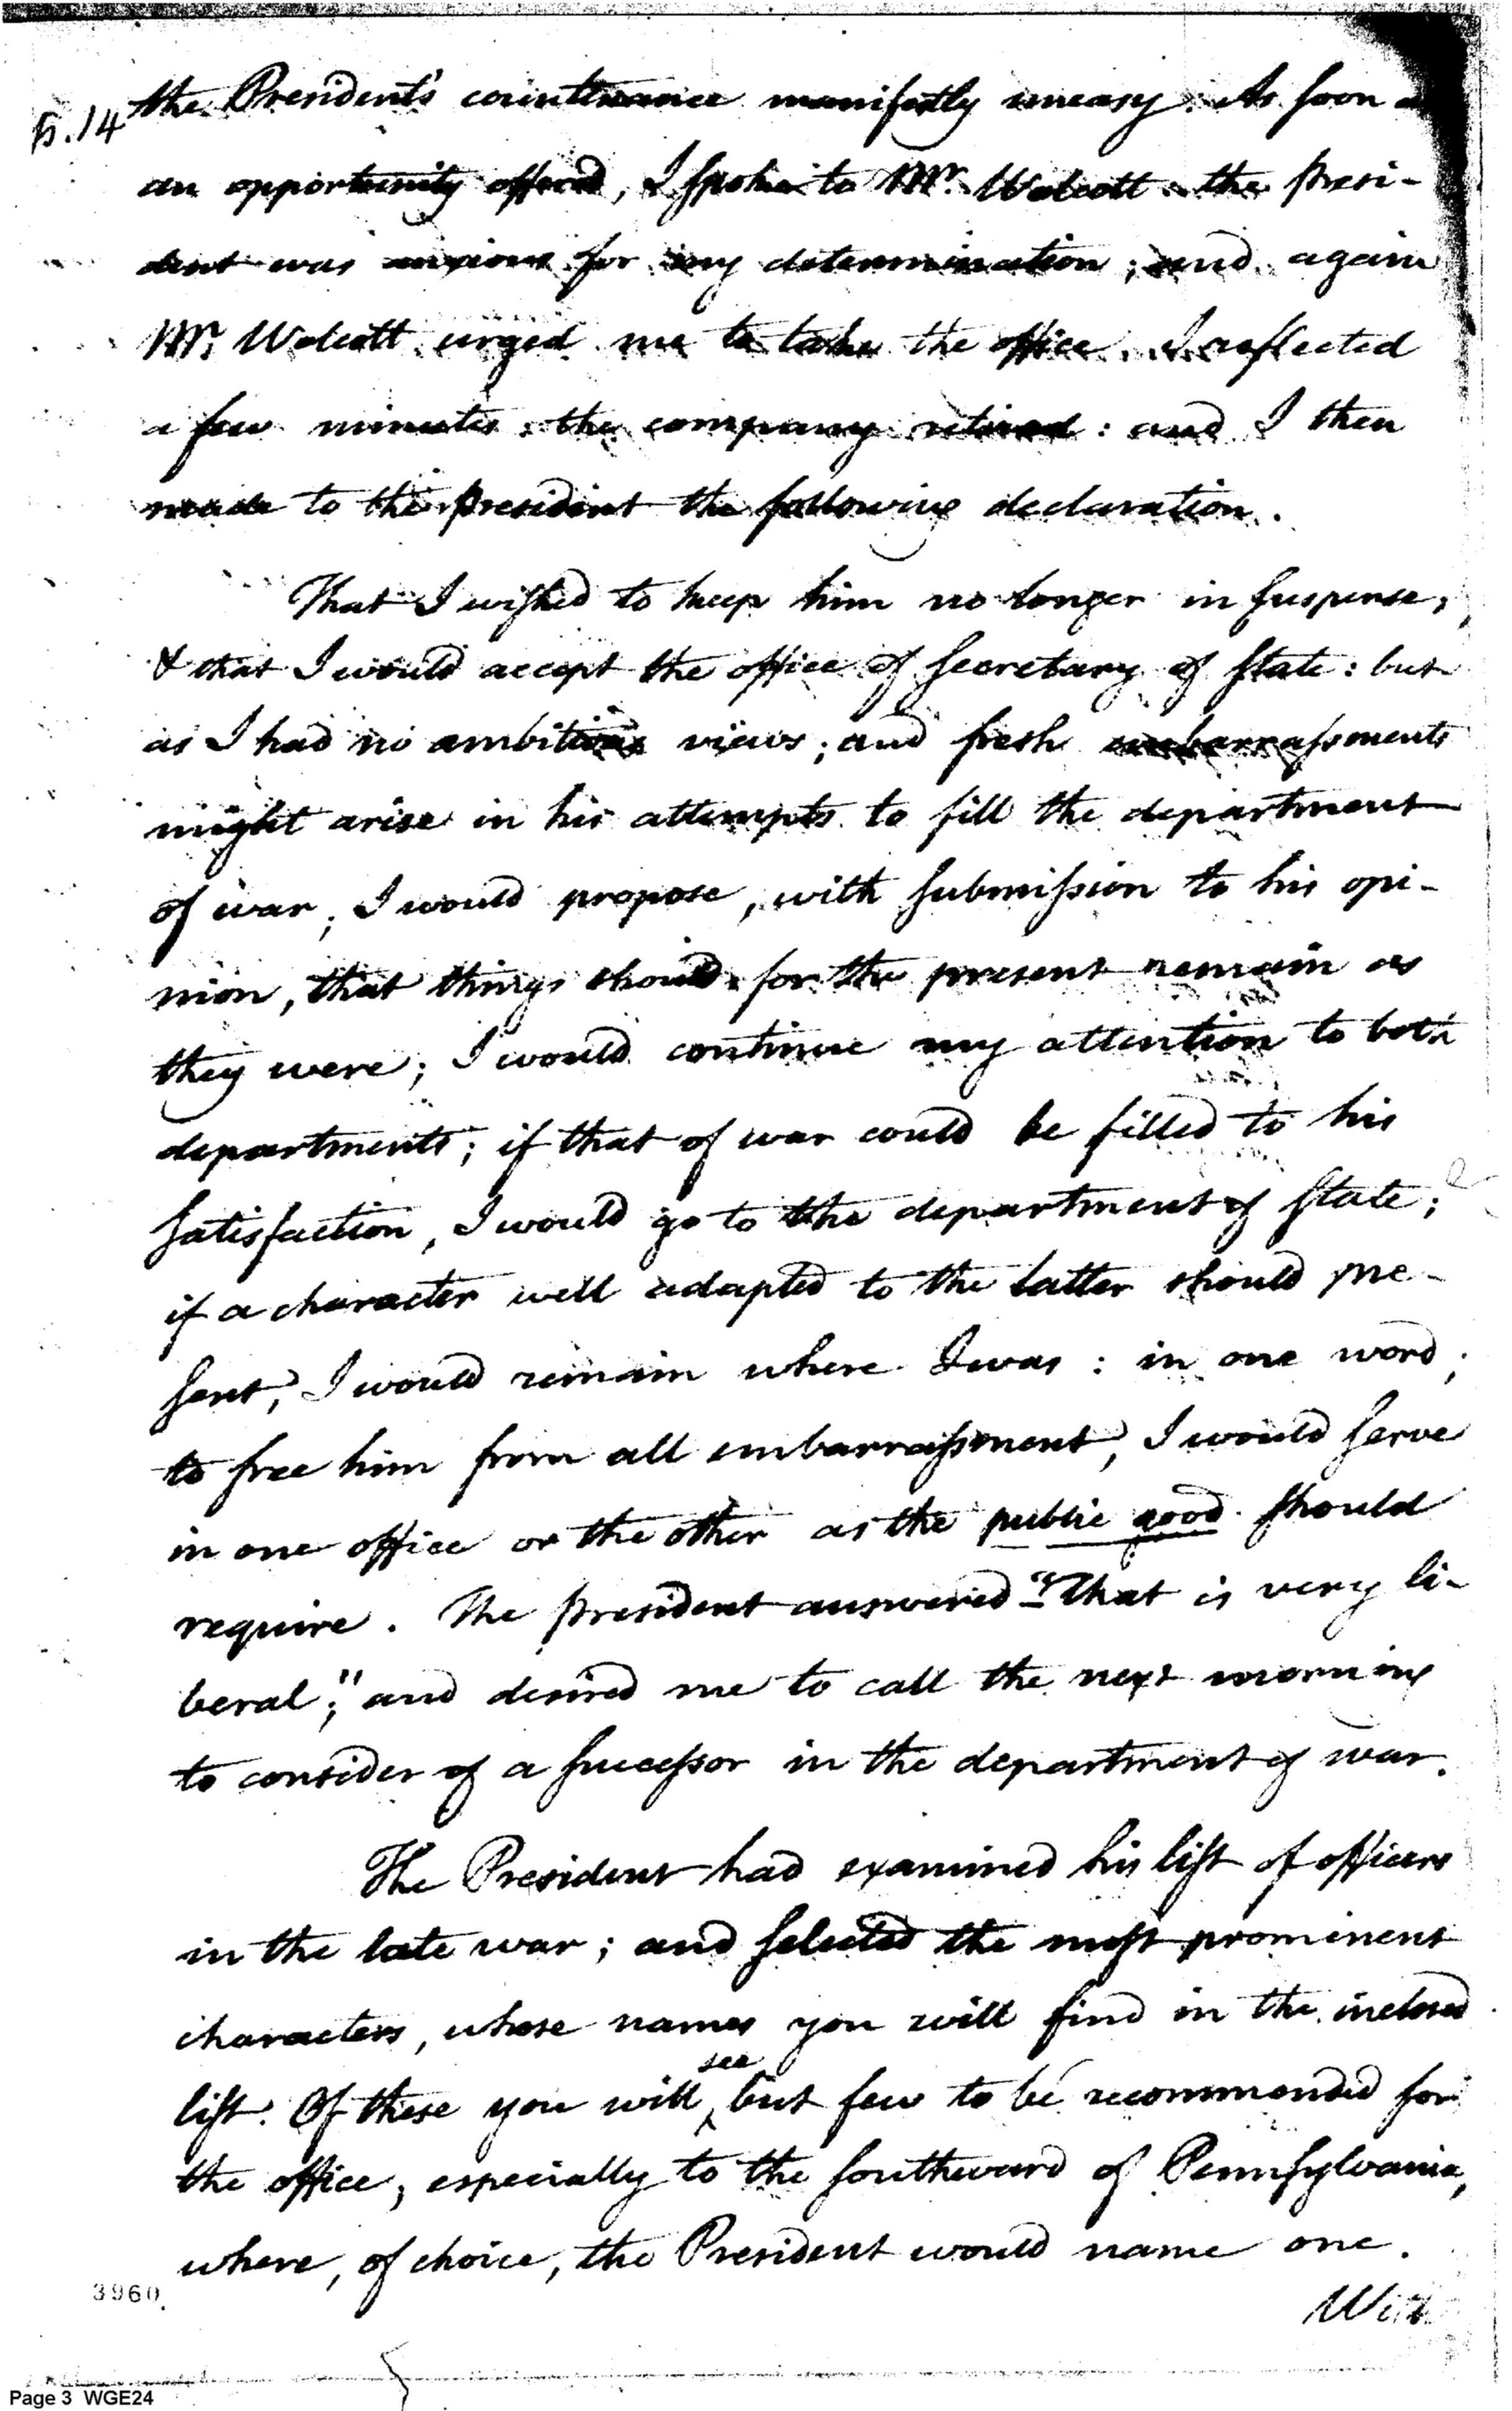 the President's countenance manifestly uneasy. As soon as
5.14
an opportunity offered, I spoke to Mr. Wolcott the presi-
dent was anxious for my determination; and again
Mr. Wolcott urged me to take the office. I reflected
a few minutes: the company retired: and I then
made to the president the following declaration.
That I wished to keep him no longer in suspense,
& that I would accept the office of Secretary of State: but
as I had no ambitious views; and fresh embarrassments
might arise in his attempts to fill the department
of war, I would propose, with submission to his opi-
nion, that things should for the present remain as
they were; I would continue my attention to both
departments; if that of war could be filled to his
satisfaction, I would go to the department of State;
if a character well adapted to the latter should pre-
sent, I would remain where I was: in one word,
to free him from all embarrassment, I would serve
in one office or the other as the public good should
require. The president answered "That is very li-
beral;" and desired me to call the next morning
to consider of a successor in the department of war.
The President had examined his list of officers
in the late war; and selected the most prominent
characters, whose names you will find in the inclosed
see
list. Of these you will ‸ but few to be recommended for
the office, especially to the southward of Pennsylvania,
where, of choice, the President would name one.
3960.
With
Page 3 WGE24